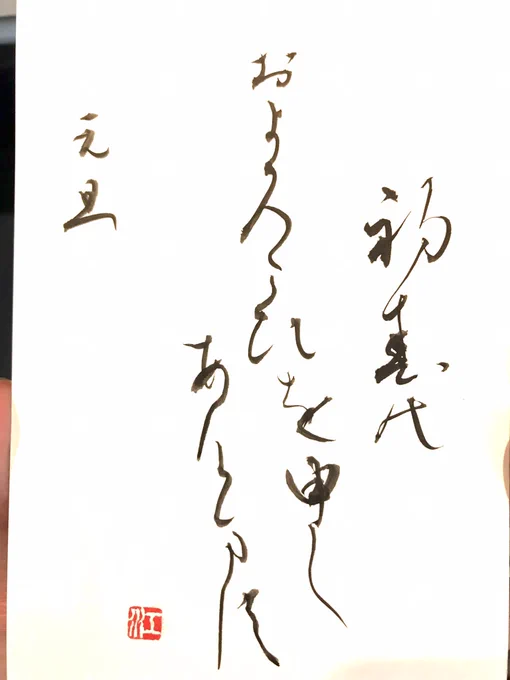 初春の
およろこひを申し
あけます
元旦
江